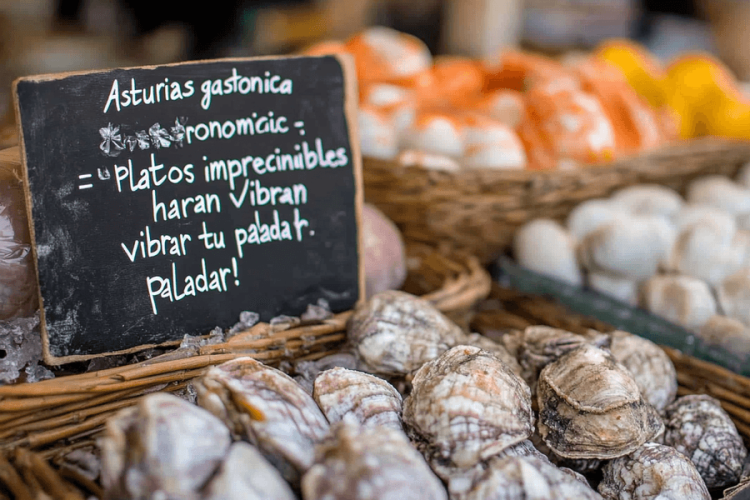 Asturias gastonica
ronomicic -
= platos impreciniibles
haran vibran
vibrar tu paladar.
paladar!